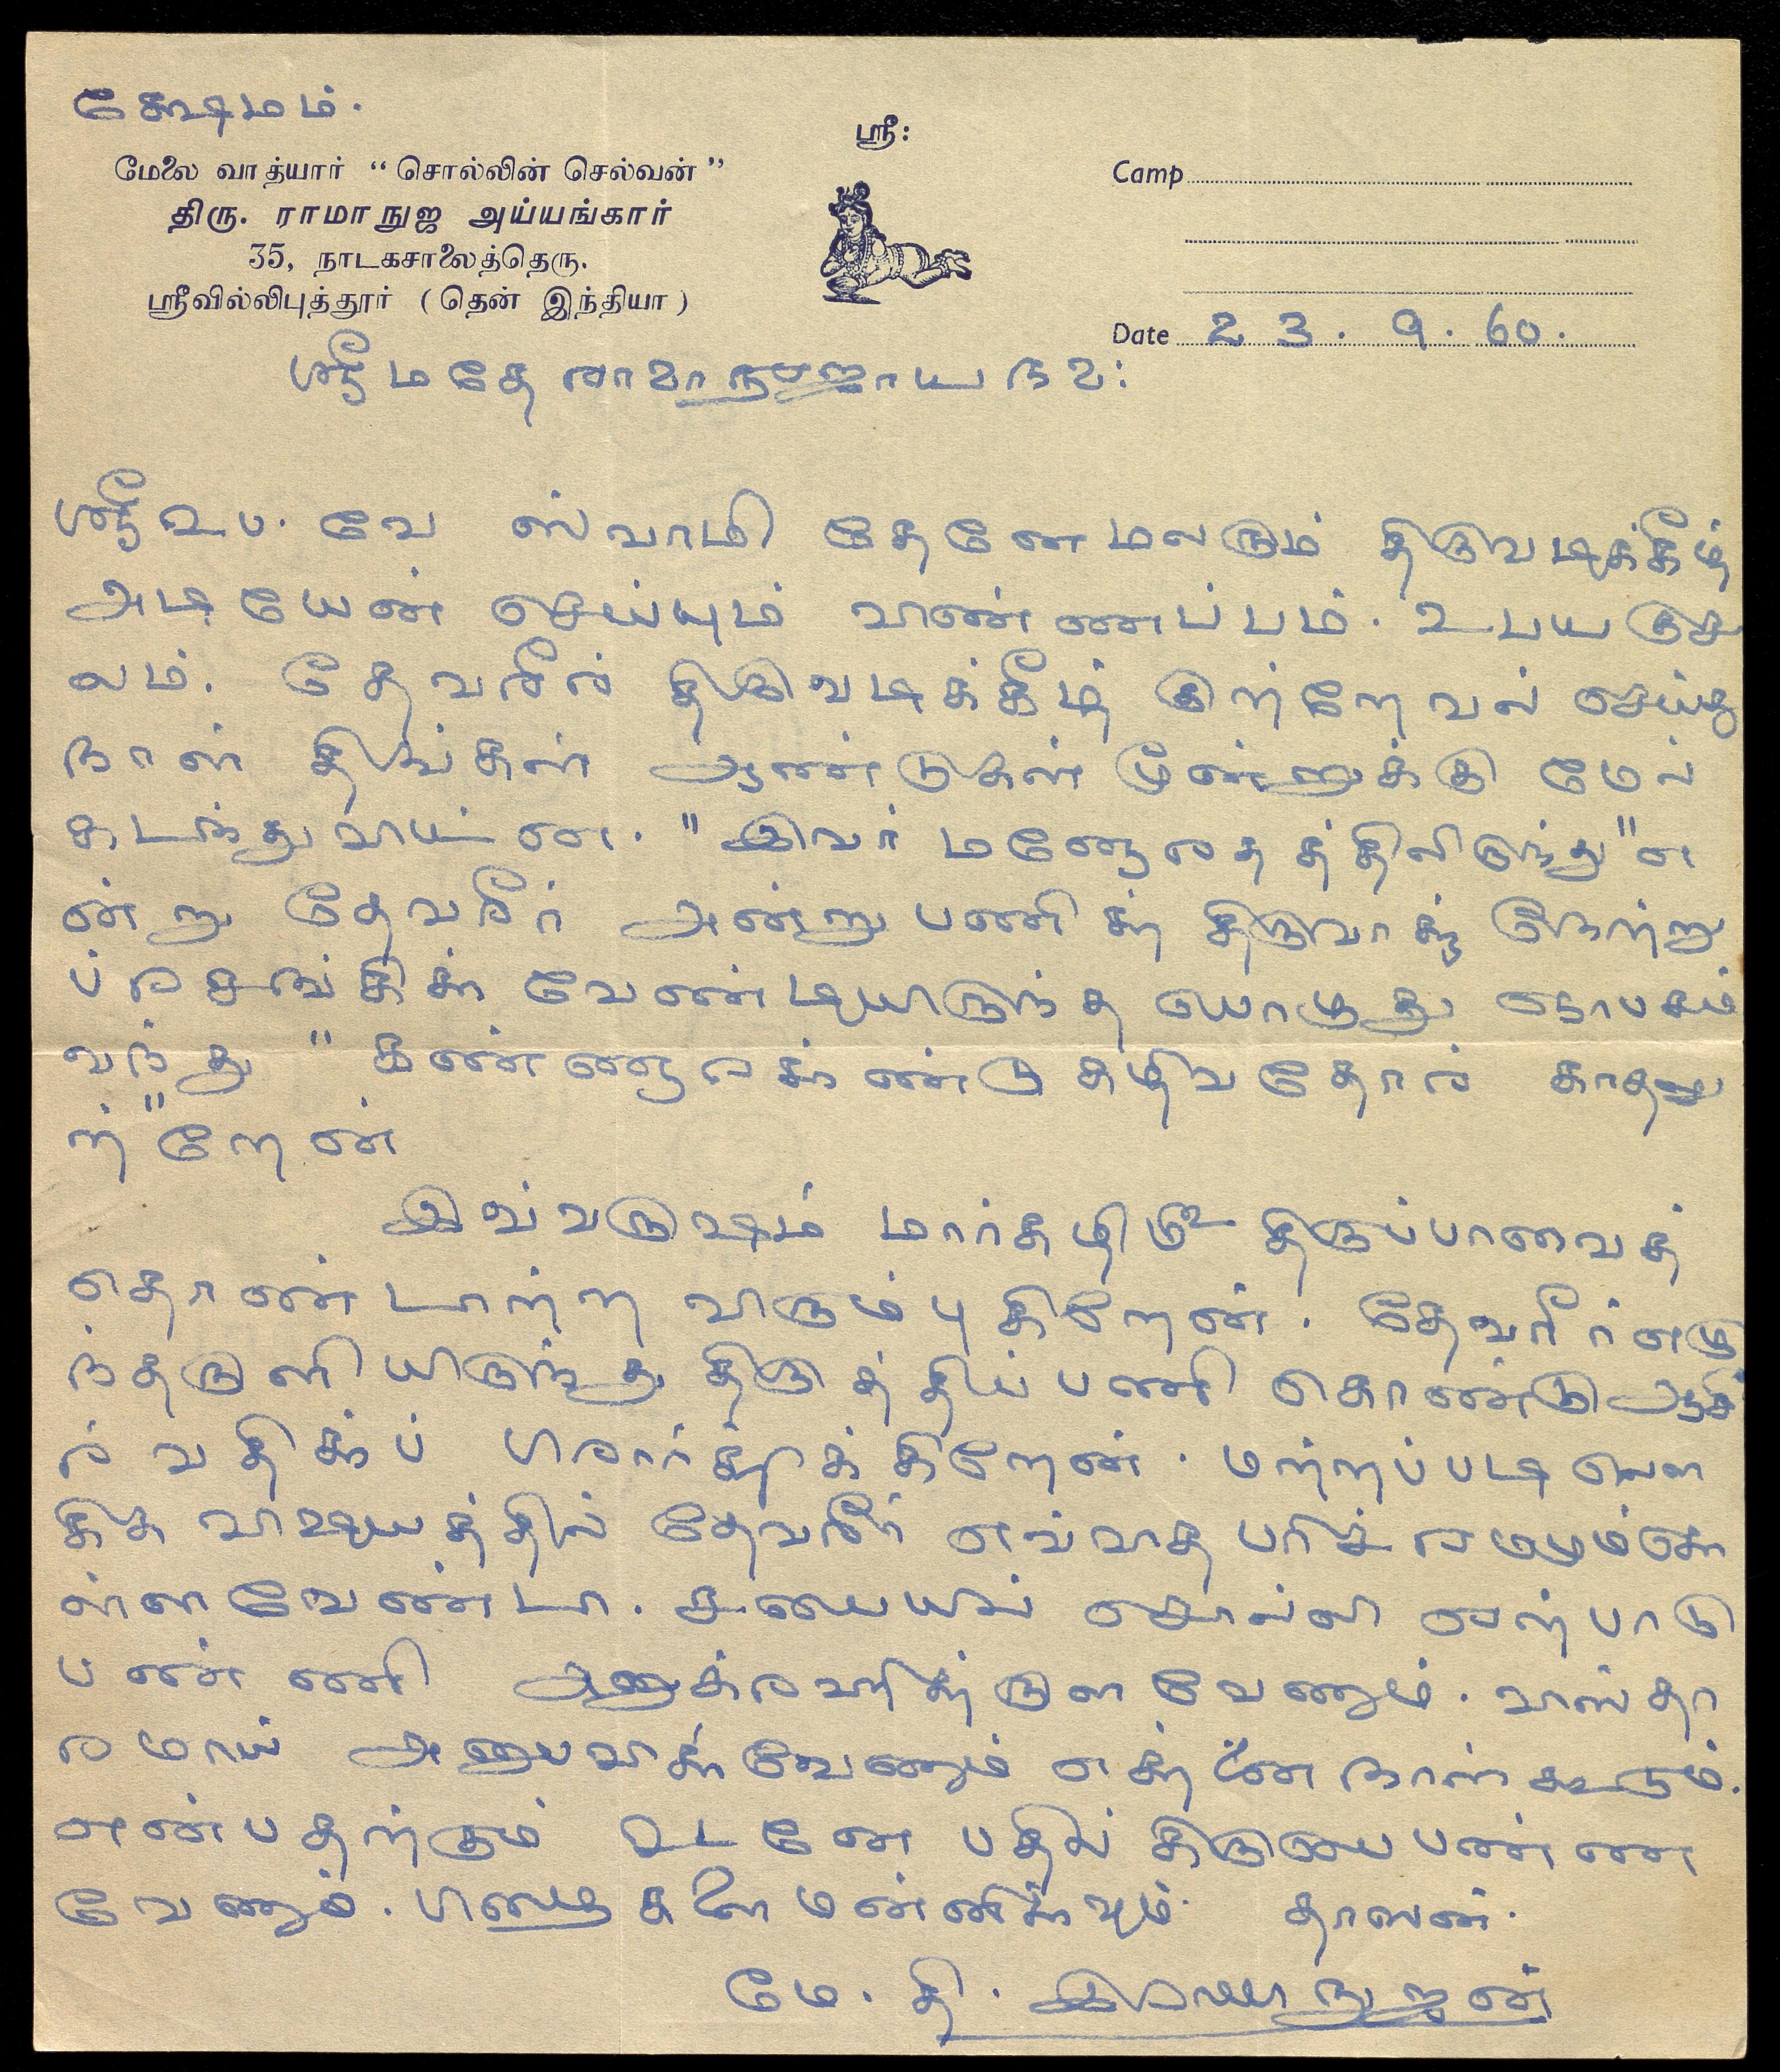 க்ஷேமம்.
ஸ்ரீ:
மேலை வாத்யார் “ சொல்லின் செல்வன் ”
திரு. ராமாநுஜ அய்யங்கார்
35, நாடகசாலைத்தெரு.
ஸ்ரீவில்லிபுத்தூர் ( தென் இந்தியா )
Camp
Date 23. 9. 60.
ஸ்ரீமதே ராமாநுஜாய நம:
ஸ்ரீ உப. வே ஸ்வாமி தேனே மலரும் திருவடிக்கீழ்
அடியேன் செய்யும் விண்ணப்பம். உபய குச
லம். தேவரீர் திருவடிக்கீழ் குற்றேவல் செய்து
நாள் திங்கள் ஆண்டுகள் மூன்றுக்கு மேல்
கடந்துவிட்டன. "இவர் மனோரதத்திலிருந்து" எ
ன்று தேவரீர் அன்று பணித்த திருவாக்கு நேற்று
ப்ரசங்கிக்க வேண்டியிருந்த பொழுது ஞாபகம்
வந்து "கண்ணாரக்கண்டு கழிவதோர் காதலு
ற்"றேன்
இவ்வருஷம் மார்கழி திருப்பாவைத்
தொண்டாற்ற விரும்புகிறேன். தேவரீர் எழு
ந்தருளியிருந்து திருத்திப்பணி கொண்டு ஆசீ
ர்வதிக்கப் பிரார்த்திக்கிறேன். மற்றப்படி லௌ
கிக விஷயத்தில் தேவரீர் எவ்வித பரிச்ரமமும் கொ
ள்ள வேண்டா. சபையில் சொல்லி ஏற்பாடு
பண்ணி அனுக்ரஹித்தருள வேணும். விஸ்தா
ரமாய் அனுபவிக்க வேணும் எத்தனை நாள் கூடும்.
என்பதற்கும் உடனே பதில் கிருபை பண்ண
வேணும். பிழைகளை மன்னிக்கவும். தாஸன்.
மே. தி. இராமாநுஜன்